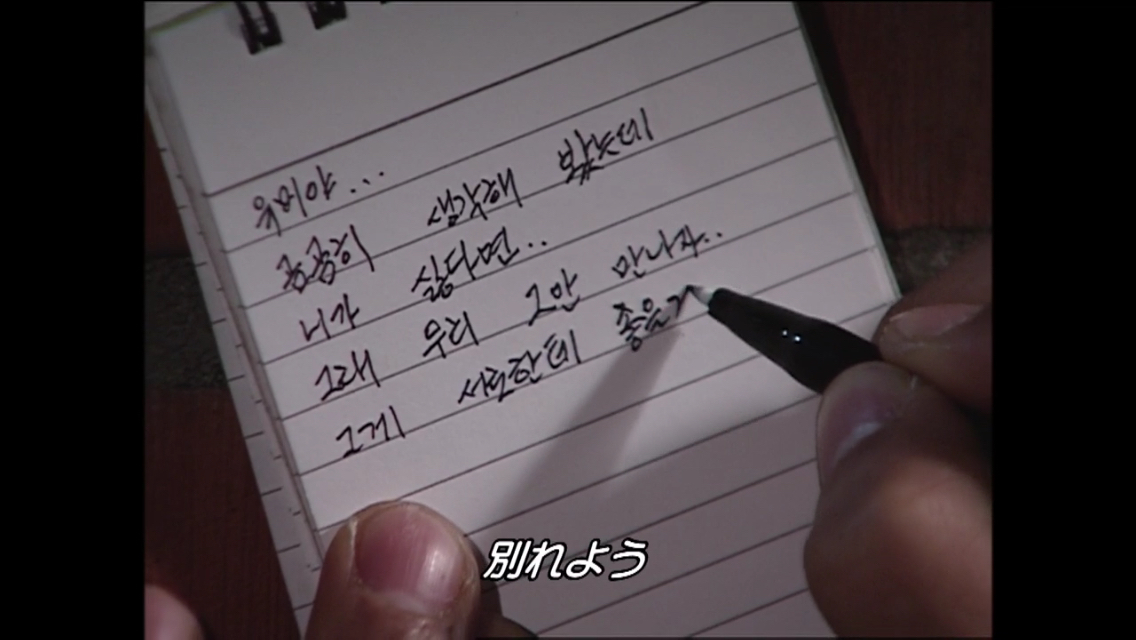 유미야...
곰곰히 생각해 봤는데
니가 싫다면..
그래 우리 그만 만나자..
그게 서로한테 좋을거
別れよう